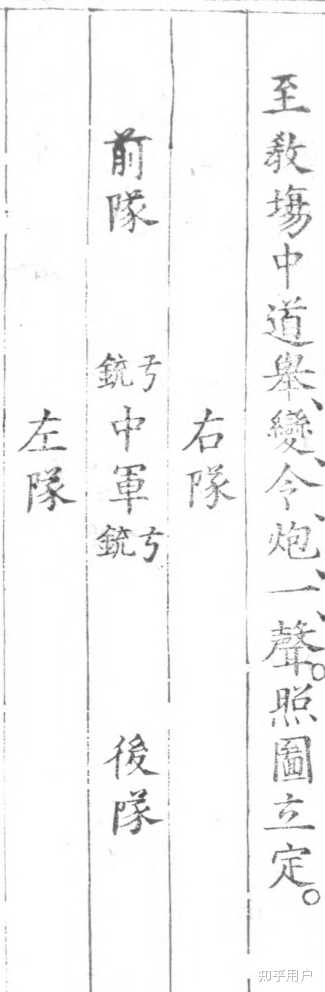 至教塲中道舉變令炮一聲。照圖立定。
右隊
前隊
銃号
中軍
銃号
後隊
左隊
知乎用户